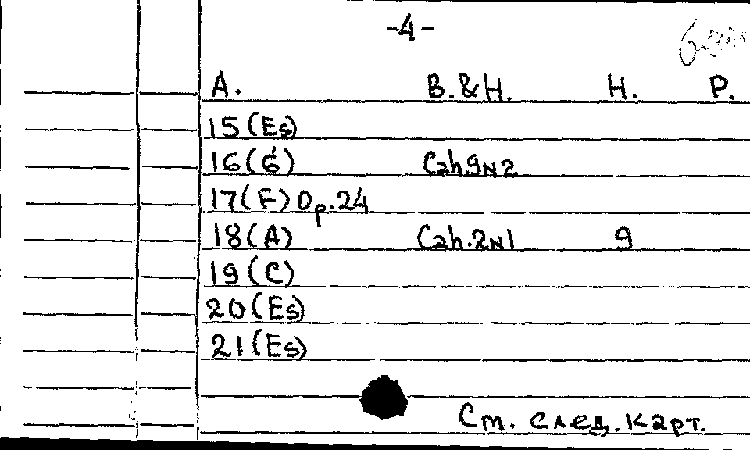 -4-
A. B.&H. H. P.
15(Es)
16(G) Cah.9N2
17(F) Op.24
18(A) Cah.2N1 9
19(C)
20(Es)
21(Es)
См. след. карт.